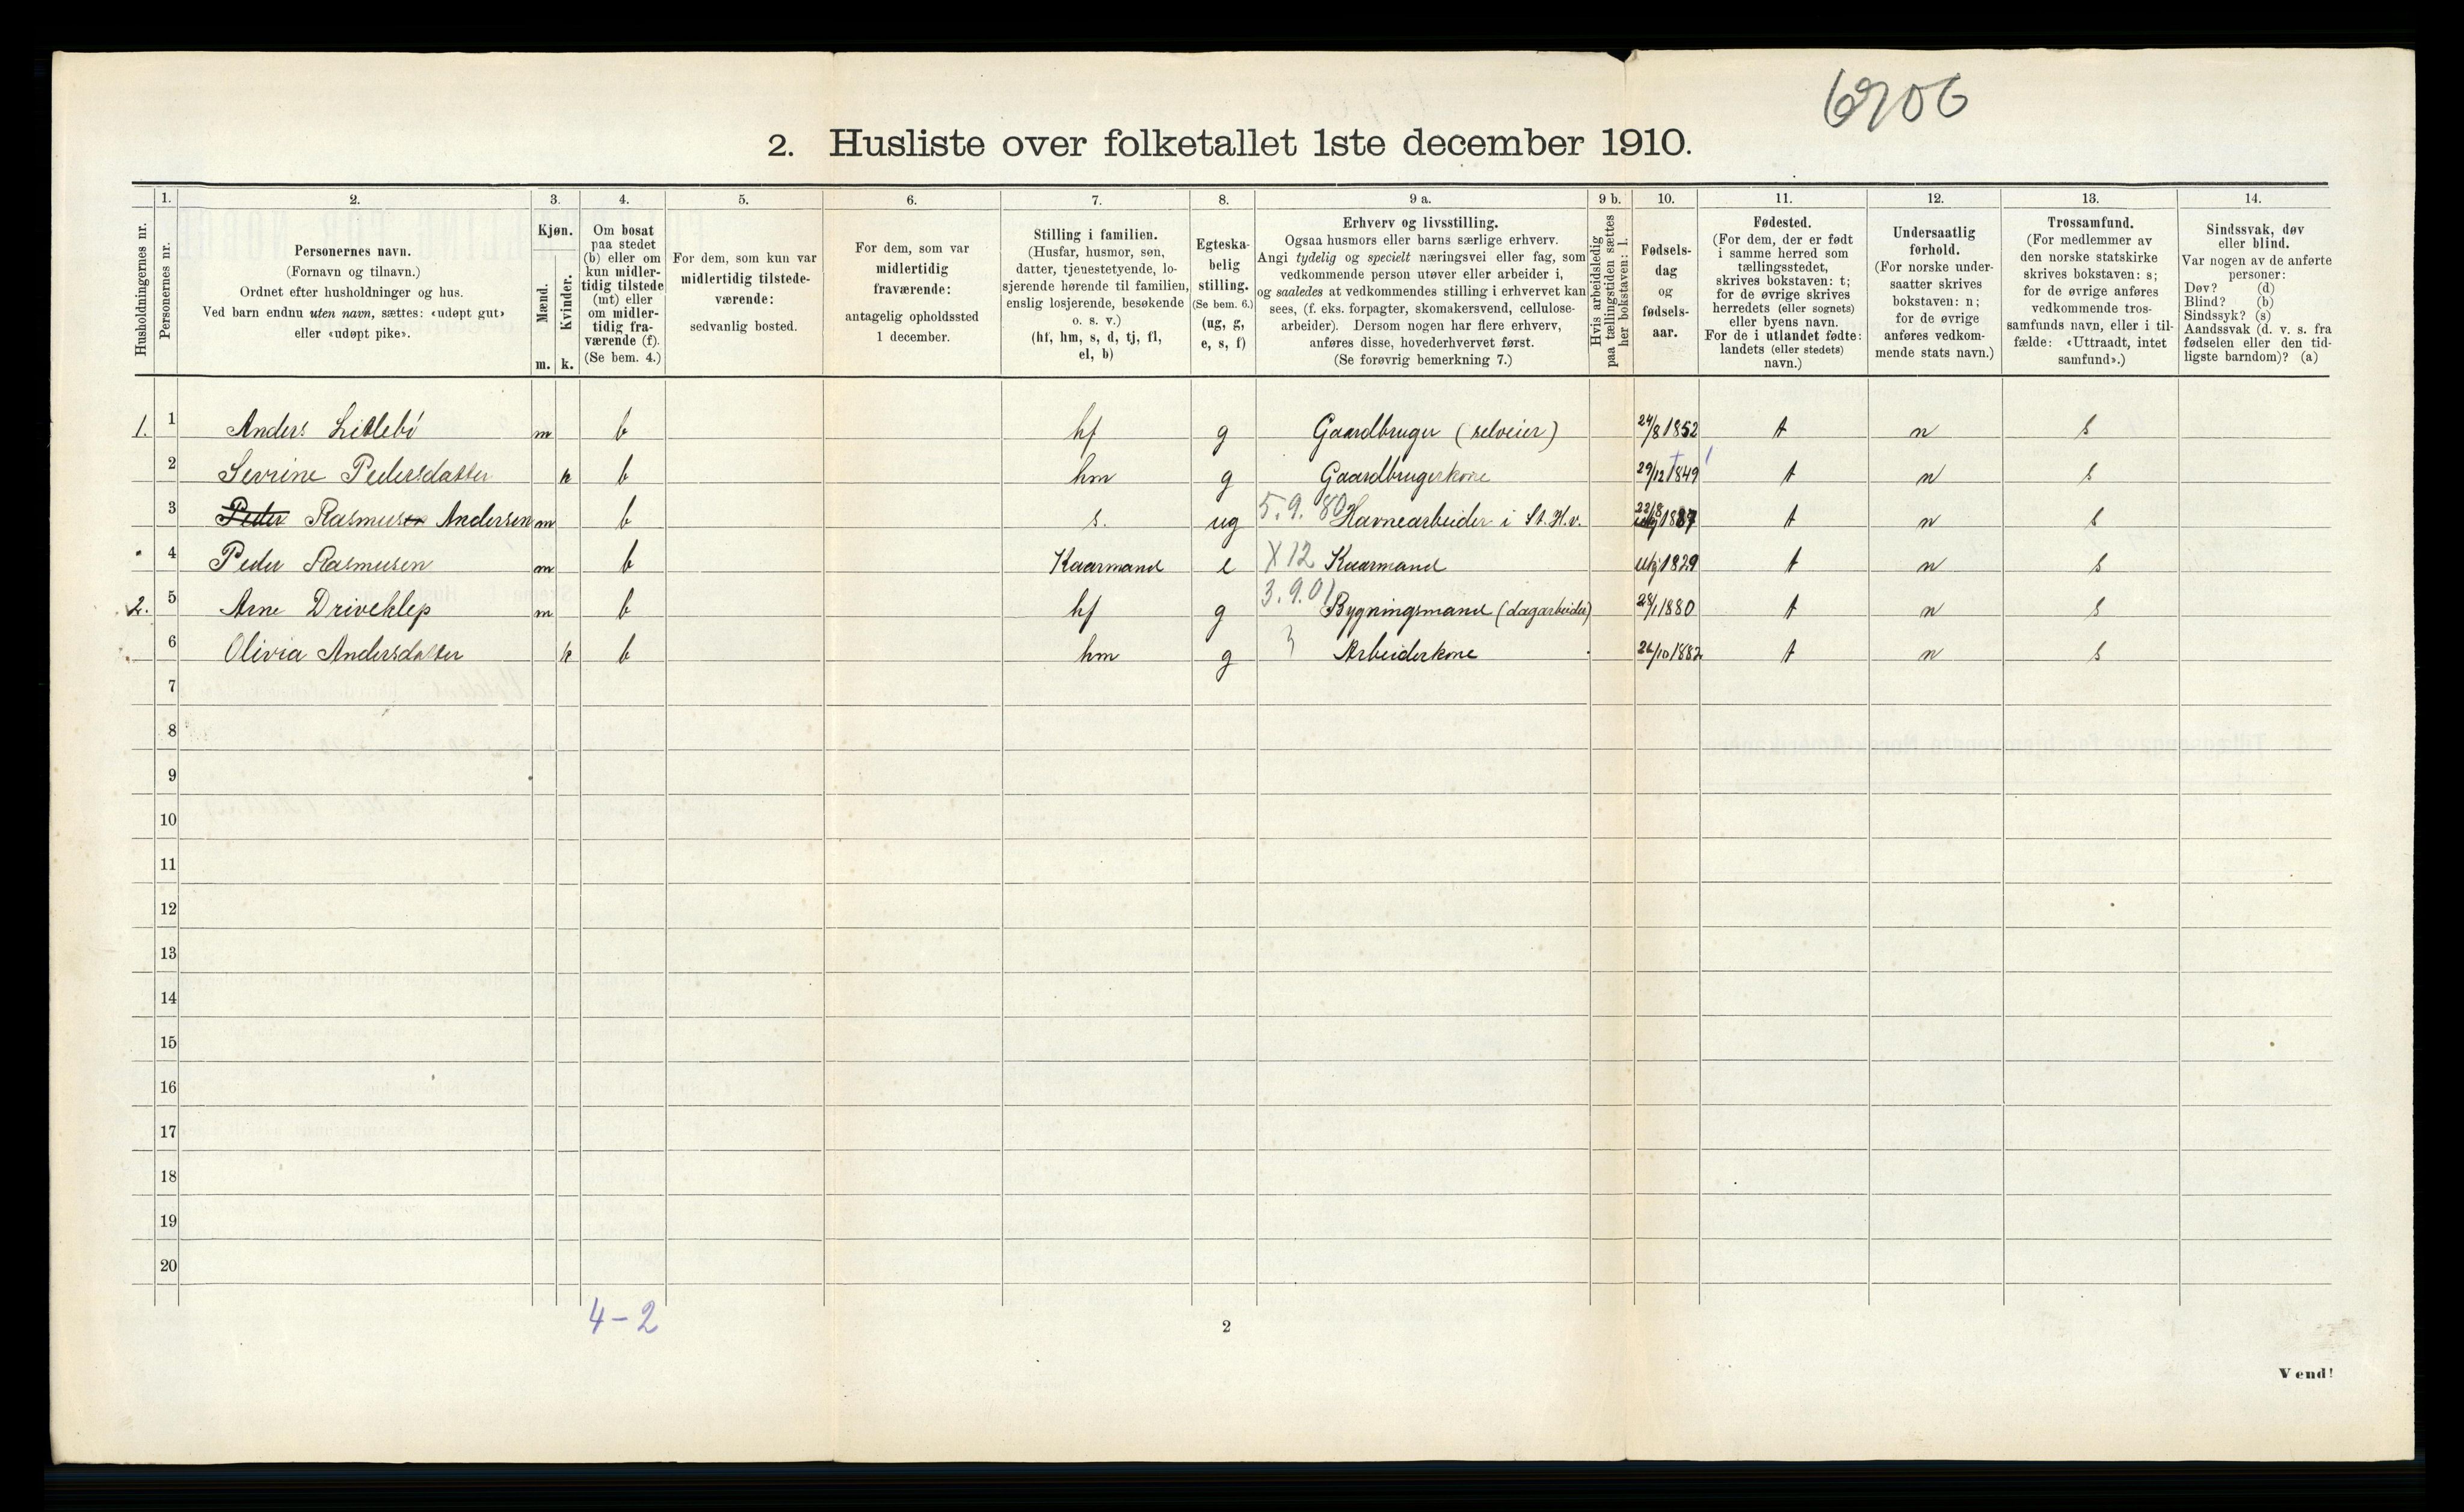 6906
2. Husliste over folketallet 1ste december 1910.
Husholdningernes nr.
1. Personernes nr.
2.
Personernes navn.
(Fornavn og tilnavn.)
Ordnet efter husholdninger og hus.
Ved barn endnu uten navn, sættes: «udøpt gut»
eller «udøpt pike».
3.
Kjøn.
Mænd. m.
Kvinder. k.
4.
Om bosat
paa stedet
(b) eller om
kun midler-
tidig tilstede
(mt) eller
om midler-
tidig fra-
værende (f).
(Se bem. 4.)
5.
For dem, som kun var
midlertidig tilstede-
værende:
sedvanlig bosted.
6.
For dem, som var
midlertidig
fraværende:
antagelig opholdssted
1 december.
7.
Stilling i familien.
(Husfar, husmor, søn,
datter, tjenestetyende, lo-
sjerende hørende til familien,
enslig losjerende, besøkende
o. s. v.)
(hf, hm, s, d, tj, fl,
el, b)
8.
Egteska-
belig
stilling.
(Se bem. 6.)
(ug, g,
e, s, f)
9 a.
Erhverv og livsstilling.
Ogsaa husmors eller barns særlige erhverv.
Angi tydelig og specielt næringsvei eller fag, som
vedkommende person utøver eller arbeider i,
og saaledes at vedkommendes stilling i erhvervet kan
sees, (f. eks. forpagter, skomakersvend, cellulose-
arbeider). Dersom nogen har flere erhverv,
anføres disse, hovederhvervet først.
(Se forøvrig bemerkning 7.)
9 b.
Hvis arbeidsledig
paa tællingstiden sættes
her bokstaven: l.
10.
Fødsels-
dag
og
fødsels-
aar.
11.
Fødested.
(For dem, der er født
i samme herred som
tællingsstedet,
skrives bokstaven: t;
for de øvrige skrives
herredets (eller sognets)
eller byens navn.
For de i utlandet fødte:
landets (eller stedets)
navn.)
12.
Undersaatlig
forhold.
(For norske under-
saatter skrives
bokstaven: n;
for de øvrige
anføres vedkom-
mende stats navn.)
13.
Trossamfund.
(For medlemmer av
den norske statskirke
skrives bokstaven: s;
for de øvrige anføres
vedkommende tros-
samfunds navn, eller i til-
fælde: «Uttraadt, intet
samfund».)
14.
Sindssvak, døv
eller blind.
Var nogen av de anførte
personer:
Døv? (d)
Blind? (b)
Sindssyk? (s)
Aandssvak (d. v. s. fra
fødselen eller den tid-
ligste barndom)? (a)
1. 1 Anders Litlebø m b hf g Gaardbruger (selveier) 24/8 1852 t n s
2 Sevrine Pedersdatter k b hm g Gaardbrugerkone 29/12 1849 t n s
3 Peder Rasmusen Andersen m b s. ug 5.9.80 Havnearbeider i St.H.v. 22/8 1887 t n s
4 Peder Rasmusen m b Kaarmand e X12 Kaarmand 1829 t n s
2. 5 Arne Driveklep m b hf g 3.9.01 Bygningsmand (dagarbeider) 28/1 1880 t n s
6 Olivia Andersdatter k b hm g Arbeiderkone 26/10 1882 t n s
7
8
9
10
11
12
13
14
15
16
17
18
19
20
4-2
2
Vend!